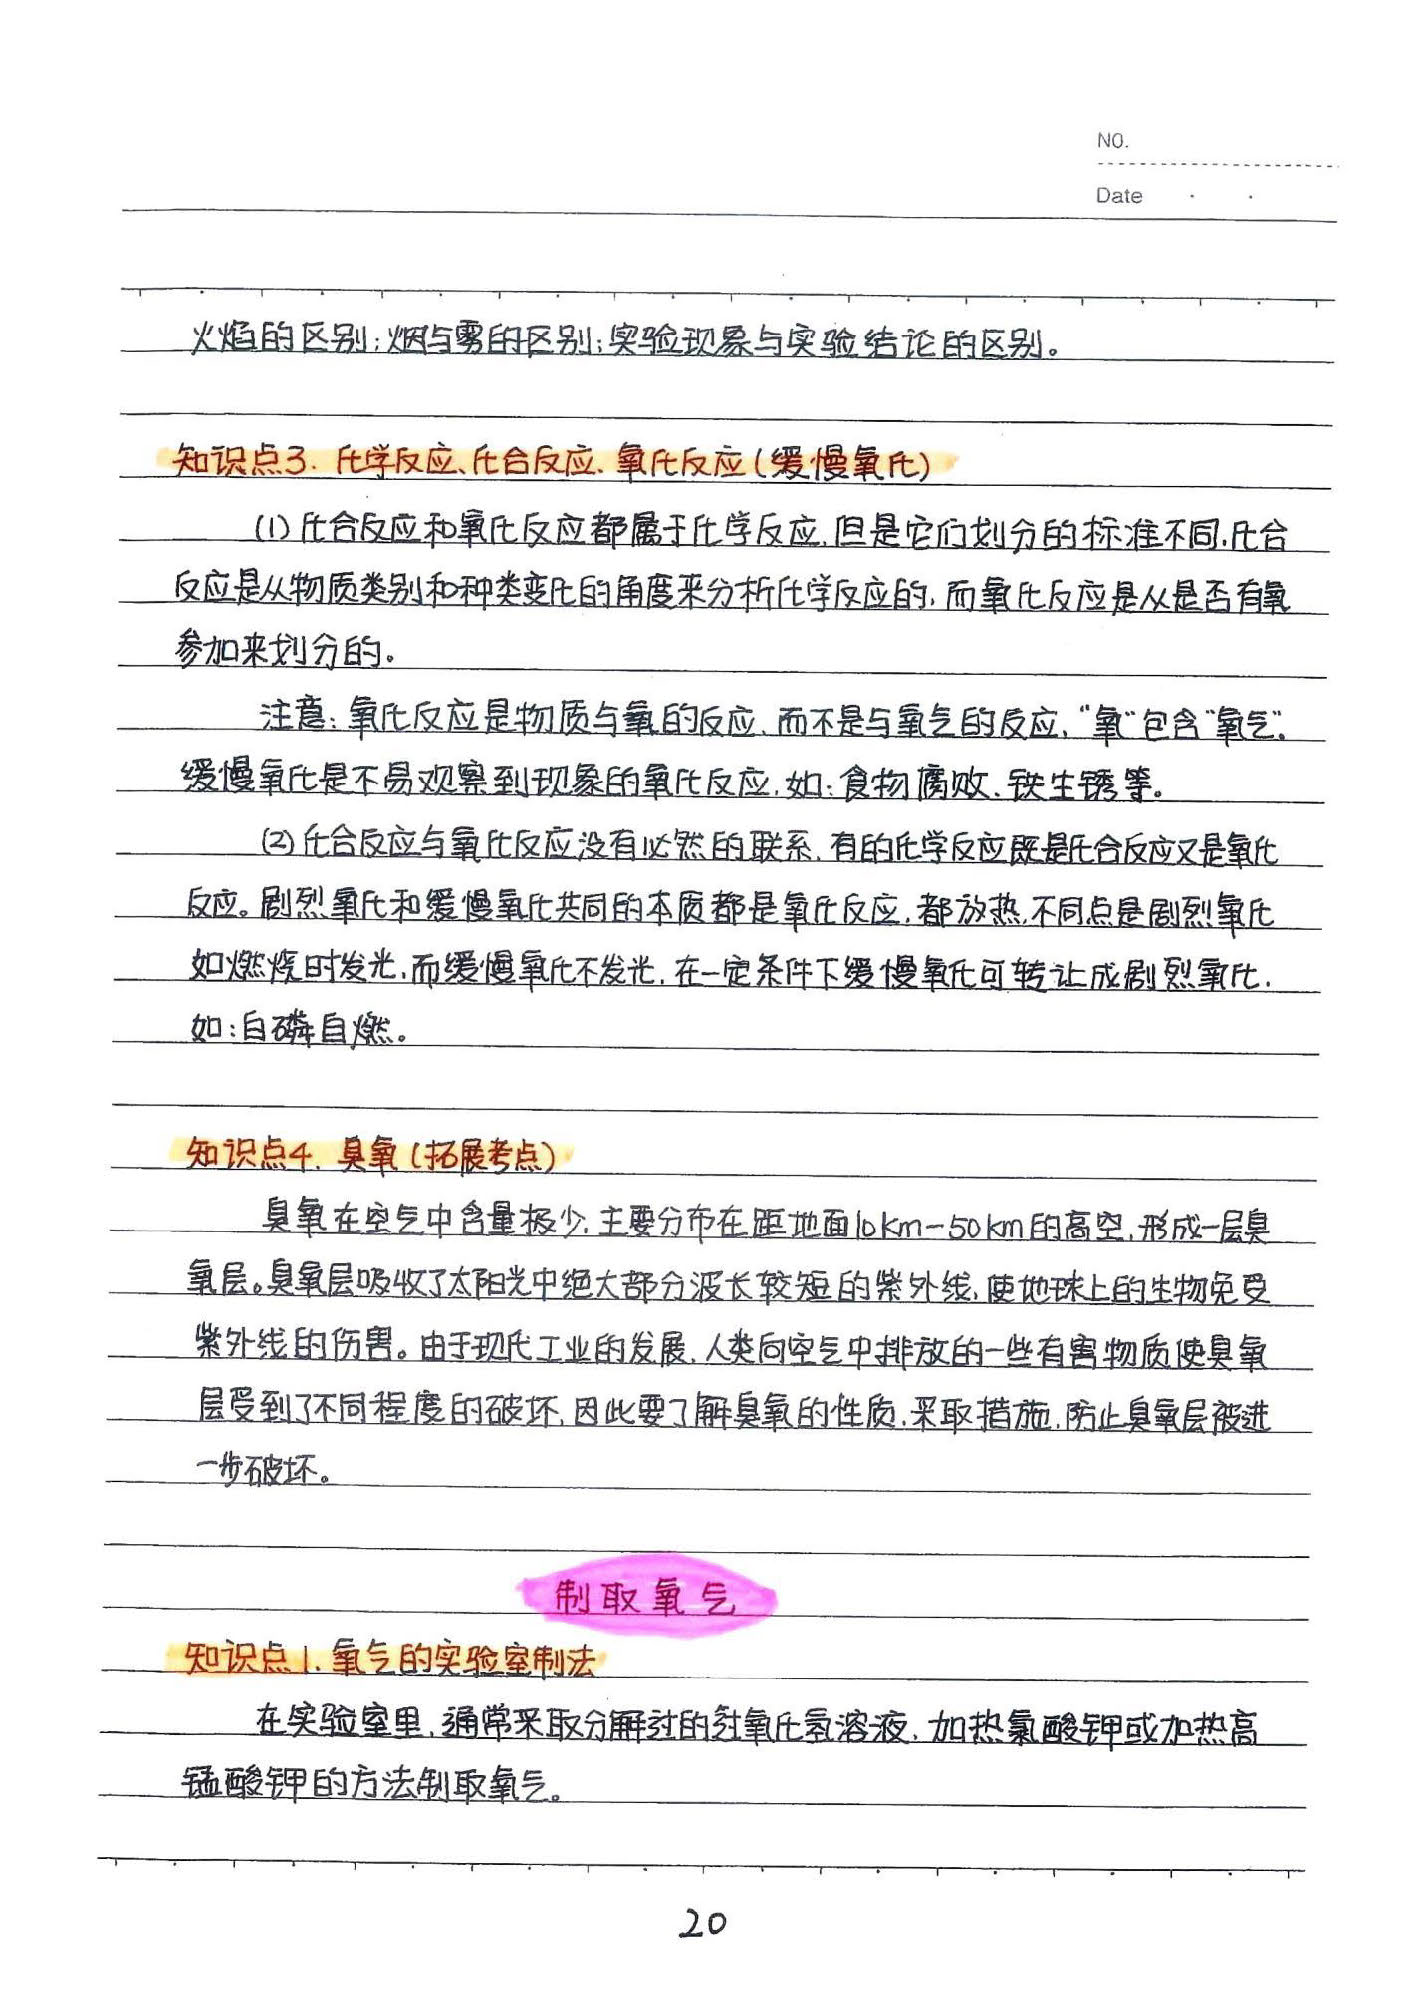 NO.
Date
火焰的区别;烟与雾的区别;实验现象与实验结论的区别。
知识点3. 化学反应、化合反应、氧化反应(缓慢氧化)
(1)化合反应和氧化反应都属于化学反应,但是它们划分的标准不同,化合
反应是从物质类别和种类变化的角度来分析化学反应的,而氧化反应是从是否有氧
参加来划分的。
注意:氧化反应是物质与氧的反应,而不是与氧气的反应,“氧”包含“氧气”。
缓慢氧化是不易观察到现象的氧化反应,如:食物腐败、铁生锈等。
(2)化合反应与氧化反应没有必然的联系,有的化学反应既是化合反应又是氧化
反应。剧烈氧化和缓慢氧化共同的本质都是氧化反应,都放热,不同点是剧烈氧化
如燃烧时发光,而缓慢氧化不发光,在一定条件下缓慢氧化可转让成剧烈氧化,
如:白磷自燃。
知识点4. 臭氧(拓展考点)
臭氧在空气中含量极少,主要分布在距地面10km-50km的高空,形成一层臭
氧层。臭氧层吸收了太阳光中绝大部分波长较短的紫外线,使地球上的生物免受
紫外线的伤害。由于现代工业的发展,人类向空气中排放的一些有害物质使臭氧
层受到了不同程度的破坏,因此要了解臭氧的性质,采取措施,防止臭氧层被进
一步破坏。
制取氧气
知识点1. 氧气的实验室制法
在实验室里,通常采取分解过的过氧化氢溶液,加热氯酸钾或加热高
锰酸钾的方法制取氧气。
20